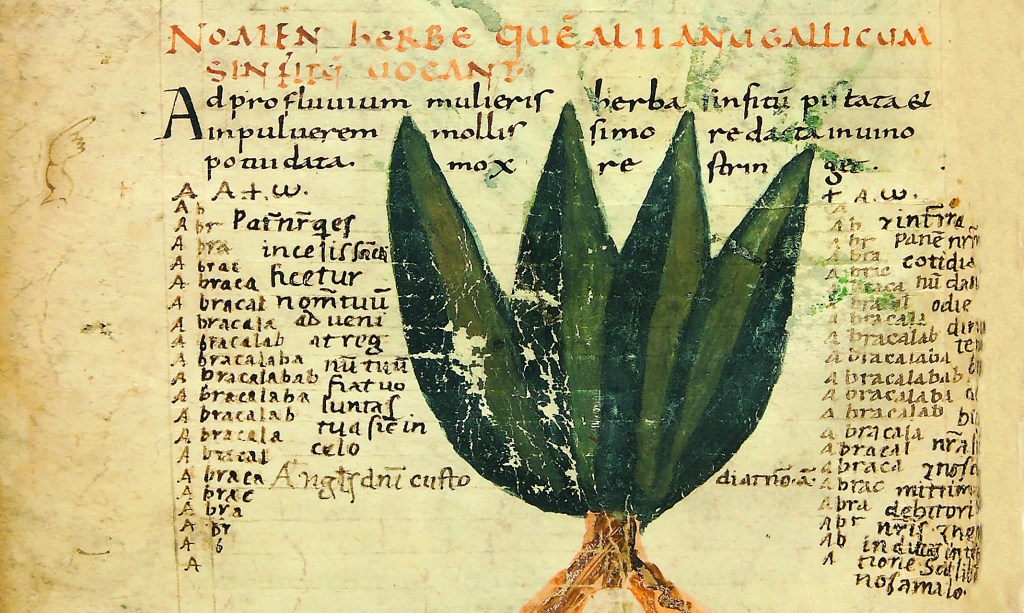 NOMEN HERBE QUĒ ALII ANUGALLICUM
SINFITŪ UOCANT.
Ad profluuium mulieris herba sinfitū pistata et
inpuluerem mollissimo redacta inuino
potui data. mox restringit.
A A + ω.
Ab
Abr Pat̄ nr̄ q es
Abra in celis scī
Abrac ficetur
Abraca
Abracal nom̄ tuū
Abracala adueni
Abracalab at reg
Abracalaba nū tuū
Abracalabab fiat uo
Abracalaba luntas
Abracalab tua sic in
Abracala celo
Abracal
Abraca Angls dnī custo diat nō. A
Abrac
Abra
Abr
Ab
A
+ A. ω.
Ab & in t̄rra
Abr Panē nr̄
Abra cotidia
Abrac nū da
Abraca
Abracal odie
Abracala
Abracalab
Abracalaba
Abracalabab
Abracalaba
Abracalab
Abracala
Abracal nr̄a
Abraca
Abrac mittim
Abra debitori
Abr nr̄is & ne
Ab
A
nos a malo.